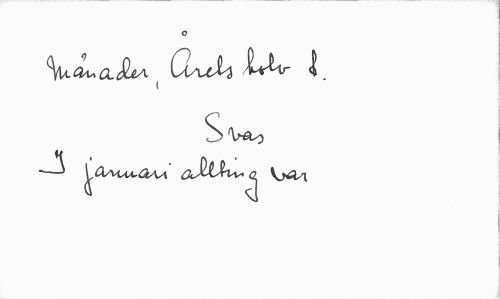 Månader, Årets tolv t.
Svas
I januari allting var